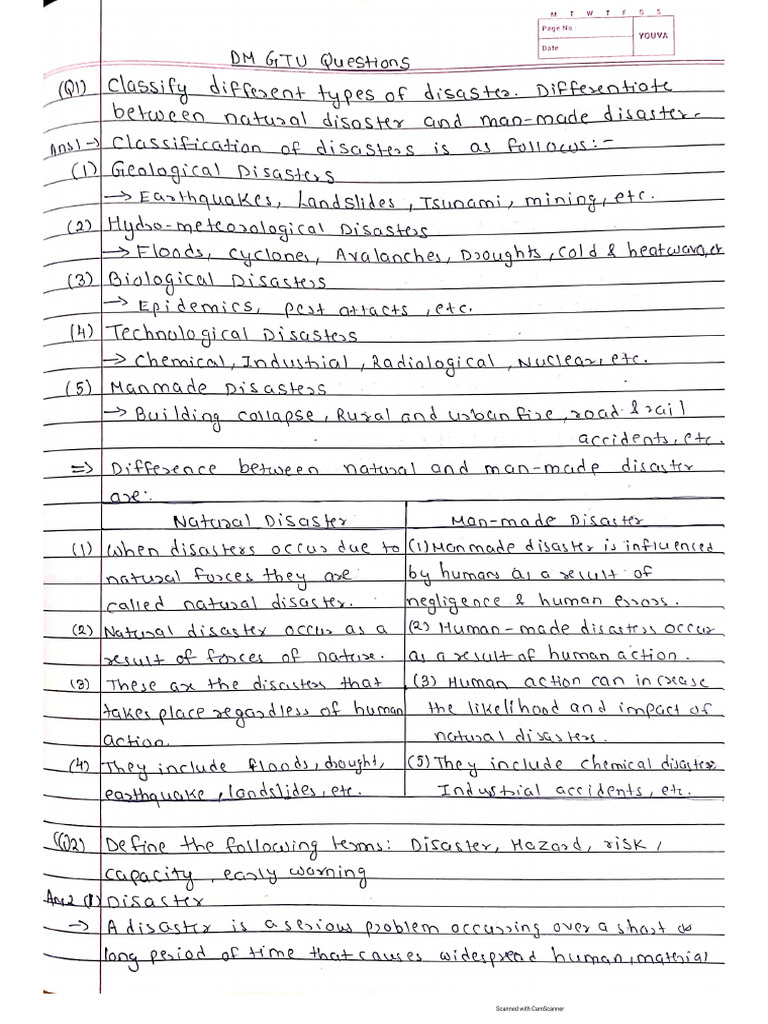 M T W T F S S
Page No
YOUVA
Date
DM GTU Questions
(Q1) Classify different types of disaster. Differentiate
between natural disaster and man-made disaster.
Ans1 → Classification of disasters is as follows:-
(1) Geological Disasters
→ Earthquakes, Landslides, Tsunami, mining, etc.
(2) Hydro-meteorological Disasters
→ Floods, cyclones, Avalanches, Droughts, cold & heatwave, etc
(3) Biological Disasters
→ Epidemics, pest attacts, etc.
(4) Technological Disasters
→ Chemical, Industrial, Radiological, Nuclear, etc.
(5) Manmade Disasters
→ Building collapse, Rural and urban fire, road & rail
accidents, etc.
⇒ Difference between natural and man-made disaster
are:
Natural Disaster Man-made Disaster
(1) When disasters occur due to (1) Manmade disaster is influenced
natural forces they are by humans as a result of
called natural disaster. negligence & human errors.
(2) Natural disaster occur as a (2) Human-made disasters occur
result of forces of nature. as a result of human action.
(3) These are the disasters that (3) Human action can increase
takes place regardless of human the likelihood and impact of
action. natural disasters.
(4) They include floods, drought, (5) They include chemical disaster
earthquake, landslides, etc. Industrial accidents, etc.
(Q2) Define the following terms: Disaster, Hazard, risk,
capacity, early warning
Ans2 (1) Disaster
→ A disaster is a serious problem occurring over a short or
long period of time that causes widespread human, material
Scanned with CamScanner